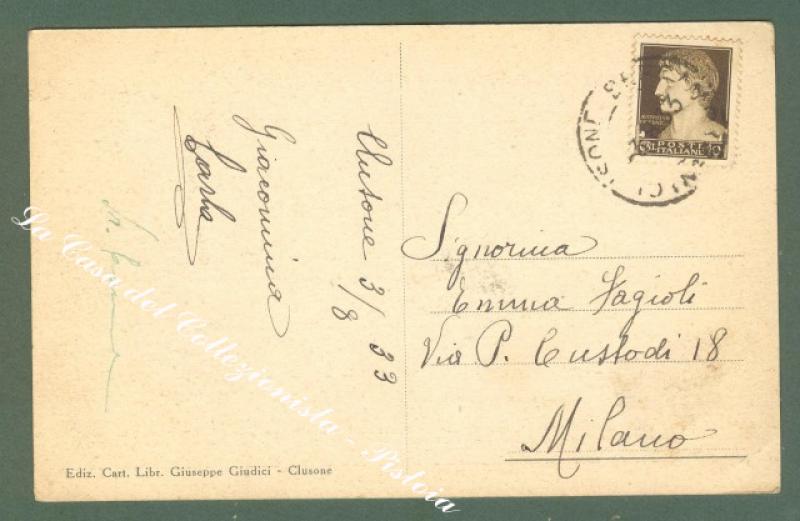 Clusone 3/8 33
Giacomina
Carla
Signorina
Emma Fagioli
Via P. Custodi 18
Milano
POSTE
ITALIANE
Ediz. Cart. Libr. Giuseppe Giudici - Clusone
La Casa del Collezionista - Pistoia